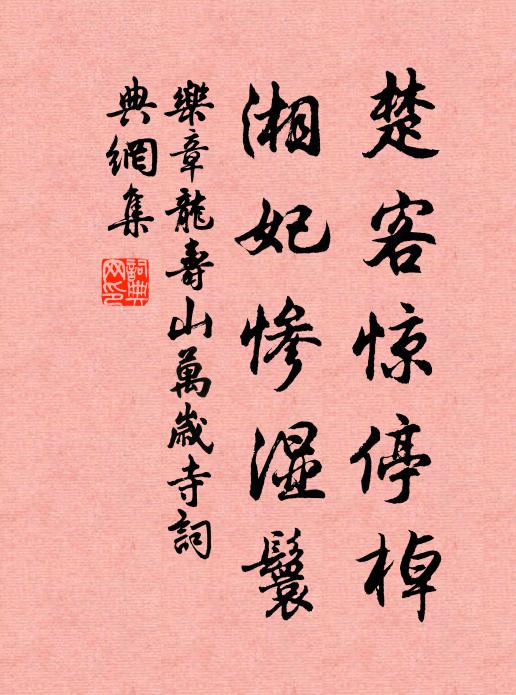 楚客惊停棹
湘妃惨湿鬟
樂章龍壽山萬歲寺詞
典網集
詞典网印